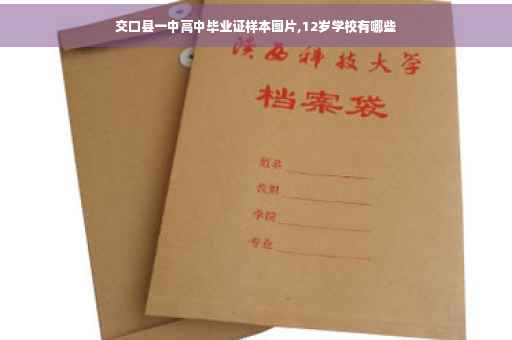 交口县一中高中毕业证样本图片,12岁学校有哪些
陕西科技大学
档案袋
学院
专业